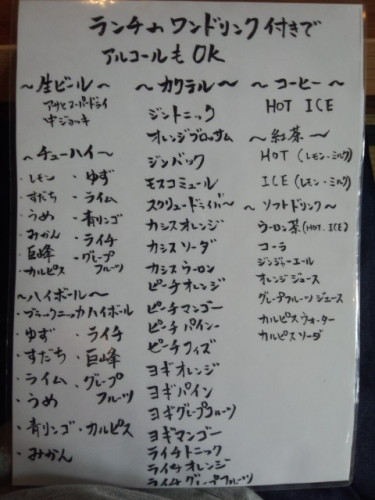 ランチのワンドリンク付きで
アルコールもOK
～生ビール～
アサヒスーパードライ
中ジョッキ
～チューハイ～
・レモン ・ゆず
・すだち ・ライム
・うめ ・青リンゴ
・みかん ・ライチ
・巨峰 ・グレープフルーツ
・カルピス
～ハイボール～
・ブラックニッカハイボール
・ゆず ・ライチ
・すだち ・巨峰
・ライム ・グレープフルーツ
・うめ
・青リンゴ ・カルピス
・みかん
～カクテル～
ジントニック
オレンジブロッサム
ジンバック
モスコミュール
スクリュードライバー
カシスオレンジ
カシスソーダ
カシスウーロン
ピーチオレンジ
ピーチマンゴー
ピーチパイン
ピーチフィズ
ヨギオレンジ
ヨギパイン
ヨギグレープフルーツ
ヨギマンゴー
ライチトニック
ライチオレンジ
ライチグレープフルーツ
～コーヒー～
HOT ICE
～紅茶～
HOT (レモン・ミルク)
ICE (レモン・ミルク)
～ソフトドリンク～
ウーロン茶(HOT.ICE)
コーラ
ジンジャーエール
オレンジジュース
グレープフルーツジュース
カルピスウォーター
カルピスソーダ